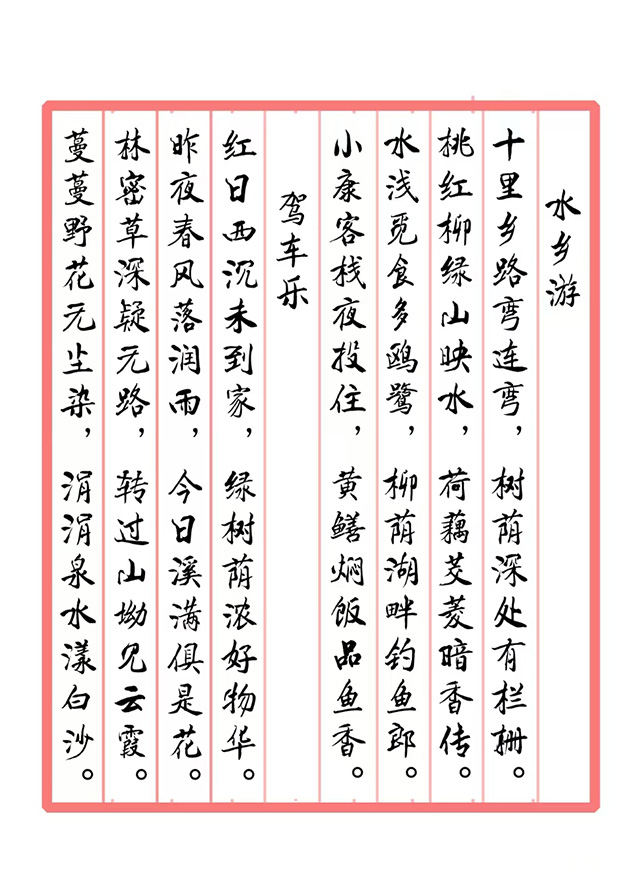 水乡游
十里乡路弯连弯，树荫深处有栏栅。
桃红柳绿山映水，荷藕茭菱暗香传。
水浅觅食多鸥鹭，柳荫湖畔钓鱼郎。
小康客栈夜投住，黄鳝焖饭品鱼香。
驾车乐
红日西沉未到家，绿树荫浓好物华。
昨夜春风落润雨，今日溪满俱是花。
林密草深疑无路，转过山坳见云霞。
蔓蔓野花无尘染，涓涓泉水漾白沙。